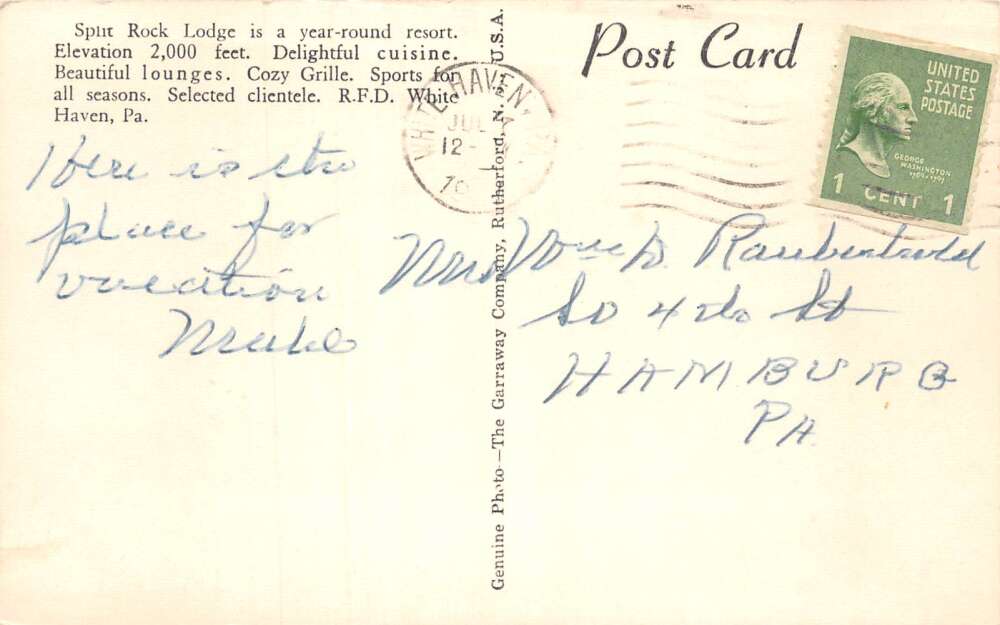 Split Rock Lodge is a year-round resort.
Elevation 2,000 feet. Delightful cuisine.
Beautiful lounges. Cozy Grille. Sports for
all seasons. Selected clientele. R.F.D. White
Haven, Pa.
Here is the
place for
vacation
Mabel
Genuine Photo—The Garraway Company, Rutherford, N. J. U.S.A.
Post Card
WHITE HAVEN, PA.
JUL
12-
UNITED
STATES
POSTAGE
GEORGE
WASHINGTON
1 CENT 1
So 4th St
HAMBURG
PA